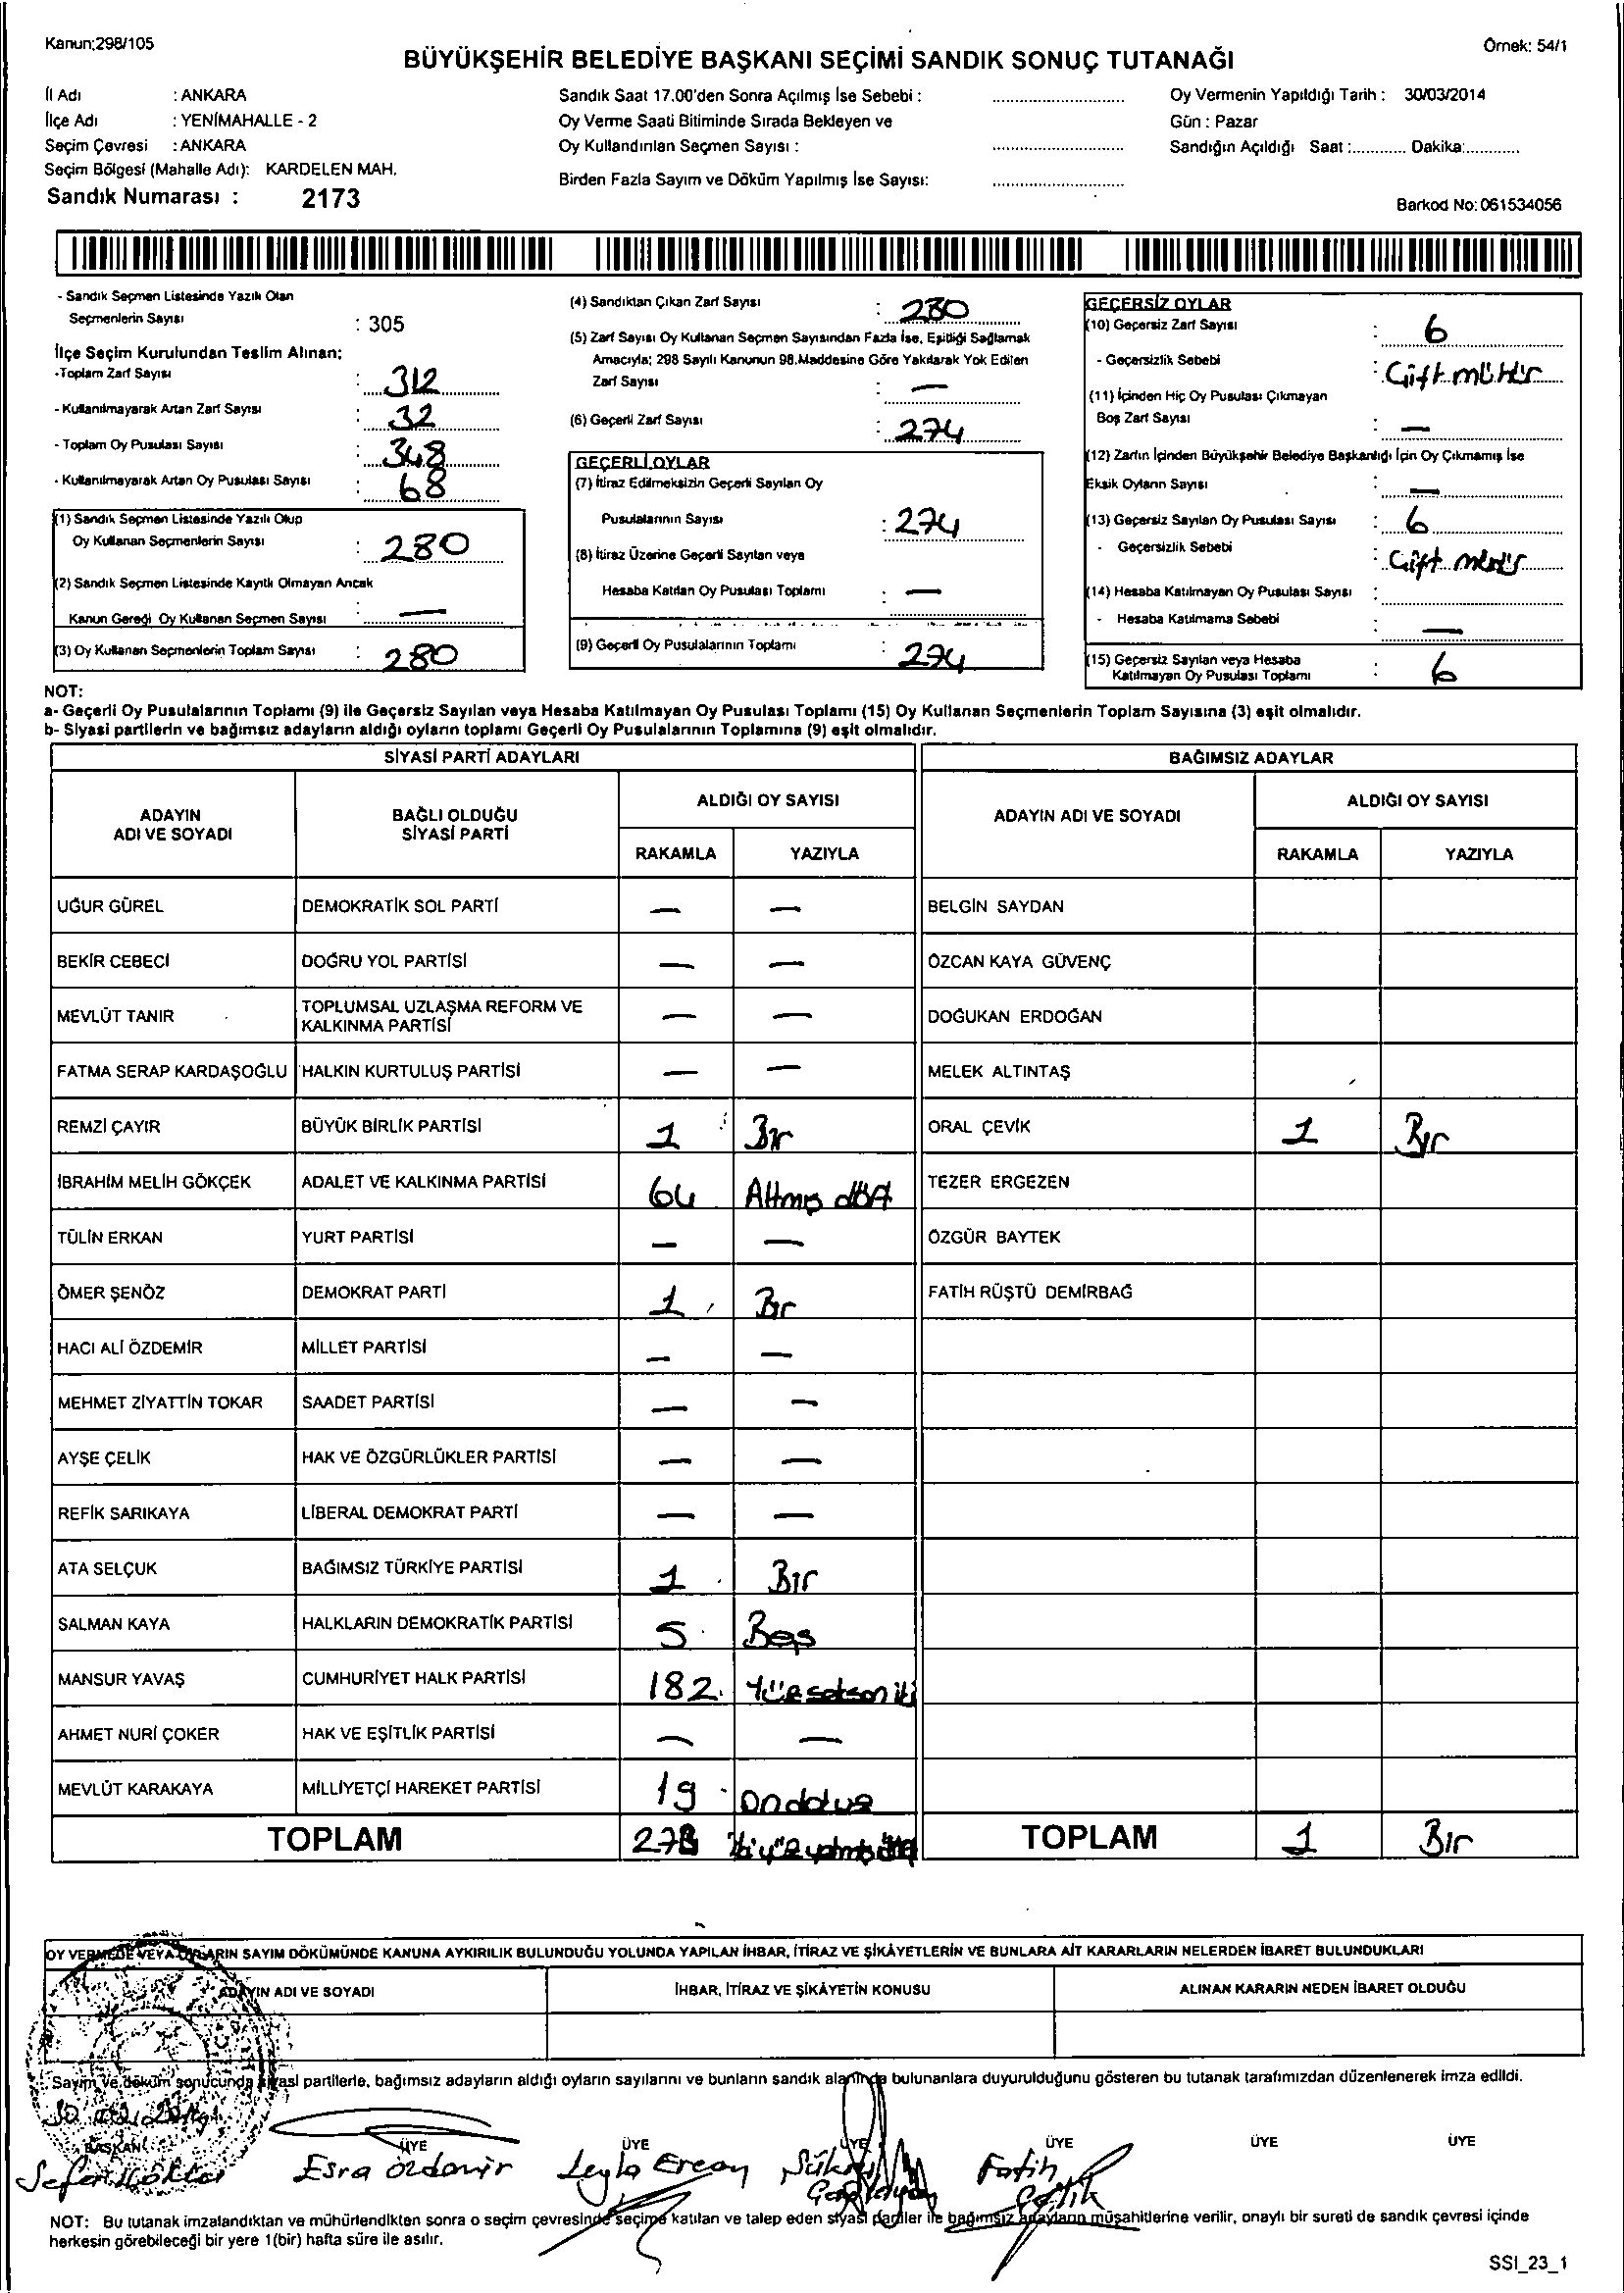 Kanun;298/105
Örnek: 54/1
BÜYÜKŞEHİR BELEDİYE BAŞKANI SEÇİMİ SANDIK SONUÇ TUTANAĞI
İl Adı : ANKARA
İlçe Adı : YENİMAHALLE - 2
Seçim Çevresi : ANKARA
Seçim Bölgesi (Mahalle Adı): KARDELEN MAH.
Sandık Numarası : 2173
Sandık Saat 17.00'den Sonra Açılmış İse Sebebi :
Oy Verme Saati Bitiminde Sırada Bekleyen ve
Oy Kullandırılan Seçmen Sayısı :
Birden Fazla Sayım ve Döküm Yapılmış İse Sayısı:
Oy Vermenin Yapıldığı Tarih : 30/03/2014
Gün : Pazar
Sandığın Açıldığı Saat :............ Dakika:............
Barkod No: 061534056
- Sandık Seçmen Listesinde Yazılı Olan
Seçmenlerin Sayısı : 305
İlçe Seçim Kurulundan Teslim Alınan;
-Toplam Zarf Sayısı : 312
- Kullanılmayarak Artan Zarf Sayısı : 32
- Toplam Oy Pusulası Sayısı : 348
- Kullanılmayarak Artan Oy Pusulası Sayısı : 68
(1) Sandık Seçmen Listesinde Yazılı Olup
Oy Kullanan Seçmenlerin Sayısı : 280
(2) Sandık Seçmen Listesinde Kayıtlı Olmayan Ancak
Kanun Gereği Oy Kullanan Seçmen Sayısı : —
(3) Oy Kullanan Seçmenlerin Toplam Sayısı : 280
(4) Sandıktan Çıkan Zarf Sayısı : 280
(5) Zarf Sayısı Oy Kullanan Seçmen Sayısından Fazla İse, Eşitliği Sağlamak
Amacıyla; 298 Sayılı Kanunun 98.Maddesine Göre Yakılarak Yok Edilen
Zarf Sayısı : —
(6) Geçerli Zarf Sayısı : 274
GEÇERLİ OYLAR
(7) İtiraz Edilmeksizin Geçerli Sayılan Oy
Pusulalarının Sayısı : 274
(8) İtiraz Üzerine Geçerli Sayılan veya
Hesaba Katılan Oy Pusulası Toplamı : —
(9) Geçerli Oy Pusulalarının Toplamı : 274
GEÇERSİZ OYLAR
(10) Geçersiz Zarf Sayısı : 6
- Geçersizlik Sebebi : Çift mühür
(11) İçinden Hiç Oy Pusulası Çıkmayan
Boş Zarf Sayısı : —
(12) Zarfın İçinden Büyükşehir Belediye Başkanlığı İçin Oy Çıkmamış İse
Eksik Oyların Sayısı : —
(13) Geçersiz Sayılan Oy Pusulası Sayısı : 6
- Geçersizlik Sebebi : Çift mühür
(14) Hesaba Katılmayan Oy Pusulası Sayısı :
- Hesaba Katılmama Sebebi : —
(15) Geçersiz Sayılan veya Hesaba
Katılmayan Oy Pusulası Toplamı : 6
NOT:
a- Geçerli Oy Pusulalarının Toplamı (9) ile Geçersiz Sayılan veya Hesaba Katılmayan Oy Pusulası Toplamı (15) Oy Kullanan Seçmenlerin Toplam Sayısına (3) eşit olmalıdır.
b- Siyasi partilerin ve bağımsız adayların aldığı oyların toplamı Geçerli Oy Pusulalarının Toplamına (9) eşit olmalıdır.
SİYASİ PARTİ ADAYLARI BAĞIMSIZ ADAYLAR
ADAYIN ADI VE SOYADI BAĞLI OLDUĞU SİYASİ PARTİ ALDIĞI OY SAYISI ADAYIN ADI VE SOYADI ALDIĞI OY SAYISI
RAKAMLA YAZIYLA RAKAMLA YAZIYLA
UĞUR GÜREL DEMOKRATİK SOL PARTİ — — BELGİN SAYDAN
BEKİR CEBECİ DOĞRU YOL PARTİSİ — — ÖZCAN KAYA GÜVENÇ
MEVLÜT TANIR TOPLUMSAL UZLAŞMA REFORM VE KALKINMA PARTİSİ — — DOĞUKAN ERDOĞAN
FATMA SERAP KARDAŞOĞLU HALKIN KURTULUŞ PARTİSİ — — MELEK ALTINTAŞ
REMZİ ÇAYIR BÜYÜK BİRLİK PARTİSİ 1 Bir ORAL ÇEVİK 1 Bir
İBRAHİM MELİH GÖKÇEK ADALET VE KALKINMA PARTİSİ 64 Altmış dört TEZER ERGEZEN
TÜLİN ERKAN YURT PARTİSİ — — ÖZGÜR BAYTEK
ÖMER ŞENÖZ DEMOKRAT PARTİ 1 Bir FATİH RÜŞTÜ DEMİRBAĞ
HACI ALİ ÖZDEMİR MİLLET PARTİSİ — —
MEHMET ZİYATTİN TOKAR SAADET PARTİSİ — —
AYŞE ÇELİK HAK VE ÖZGÜRLÜKLER PARTİSİ — —
REFİK SARIKAYA LİBERAL DEMOKRAT PARTİ — —
ATA SELÇUK BAĞIMSIZ TÜRKİYE PARTİSİ 1 Bir
SALMAN KAYA HALKLARIN DEMOKRATİK PARTİSİ 5 Beş
MANSUR YAVAŞ CUMHURİYET HALK PARTİSİ 182 Yüz seksen iki
AHMET NURİ ÇOKER HAK VE EŞİTLİK PARTİSİ — —
MEVLÜT KARAKAYA MİLLİYETÇİ HAREKET PARTİSİ 19 ondokuz
TOPLAM 273 TOPLAM 1 Bir
OY VERMEDE VEYA OYLARIN SAYIM DÖKÜMÜNDE KANUNA AYKIRILIK BULUNDUĞU YOLUNDA YAPILAN İHBAR, İTİRAZ VE ŞİKÂYETLERİN VE BUNLARA AİT KARARLARIN NELERDEN İBARET BULUNDUKLARI
ADAYIN ADI VE SOYADI İHBAR, İTİRAZ VE ŞİKÂYETİN KONUSU ALINAN KARARIN NEDEN İBARET OLDUĞU
Sayım ve döküm sonucunda siyasi partilerle, bağımsız adayların aldığı oyların sayılarını ve bunların sandık alanında bulunanlara duyurulduğunu gösteren bu tutanak tarafımızdan düzenlenerek imza edildi.
BAŞKAN ÜYE ÜYE ÜYE ÜYE ÜYE ÜYE
Esra Özdemir Leyla Ercan Şükrü Fatih Çelik
NOT: Bu tutanak imzalandıktan ve mühürlendikten sonra o seçim çevresinde seçime katılan ve talep eden siyasi partiler ile bağımsız adayların müşahitlerine verilir, onaylı bir sureti de sandık çevresi içinde
herkesin görebileceği bir yere 1(bir) hafta süre ile asılır.
SSI_23_1